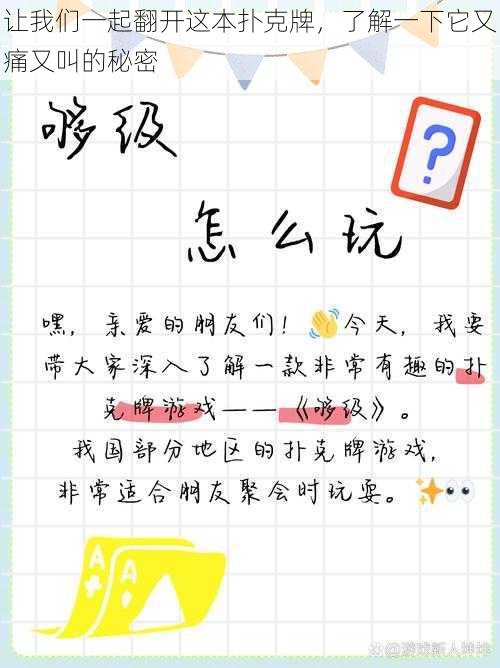 让我们一起翻开这本扑克牌，了解一下它又
痛又叫的秘密
够级
怎么玩
?
嘿，亲爱的朋友们！👋今天，我要
带大家深入了解一款非常有趣的扑
克牌游戏——《够级》。
我国部分地区的扑克牌游戏，
非常适合朋友聚会时玩耍。✨👀
A
A
@游戏新人